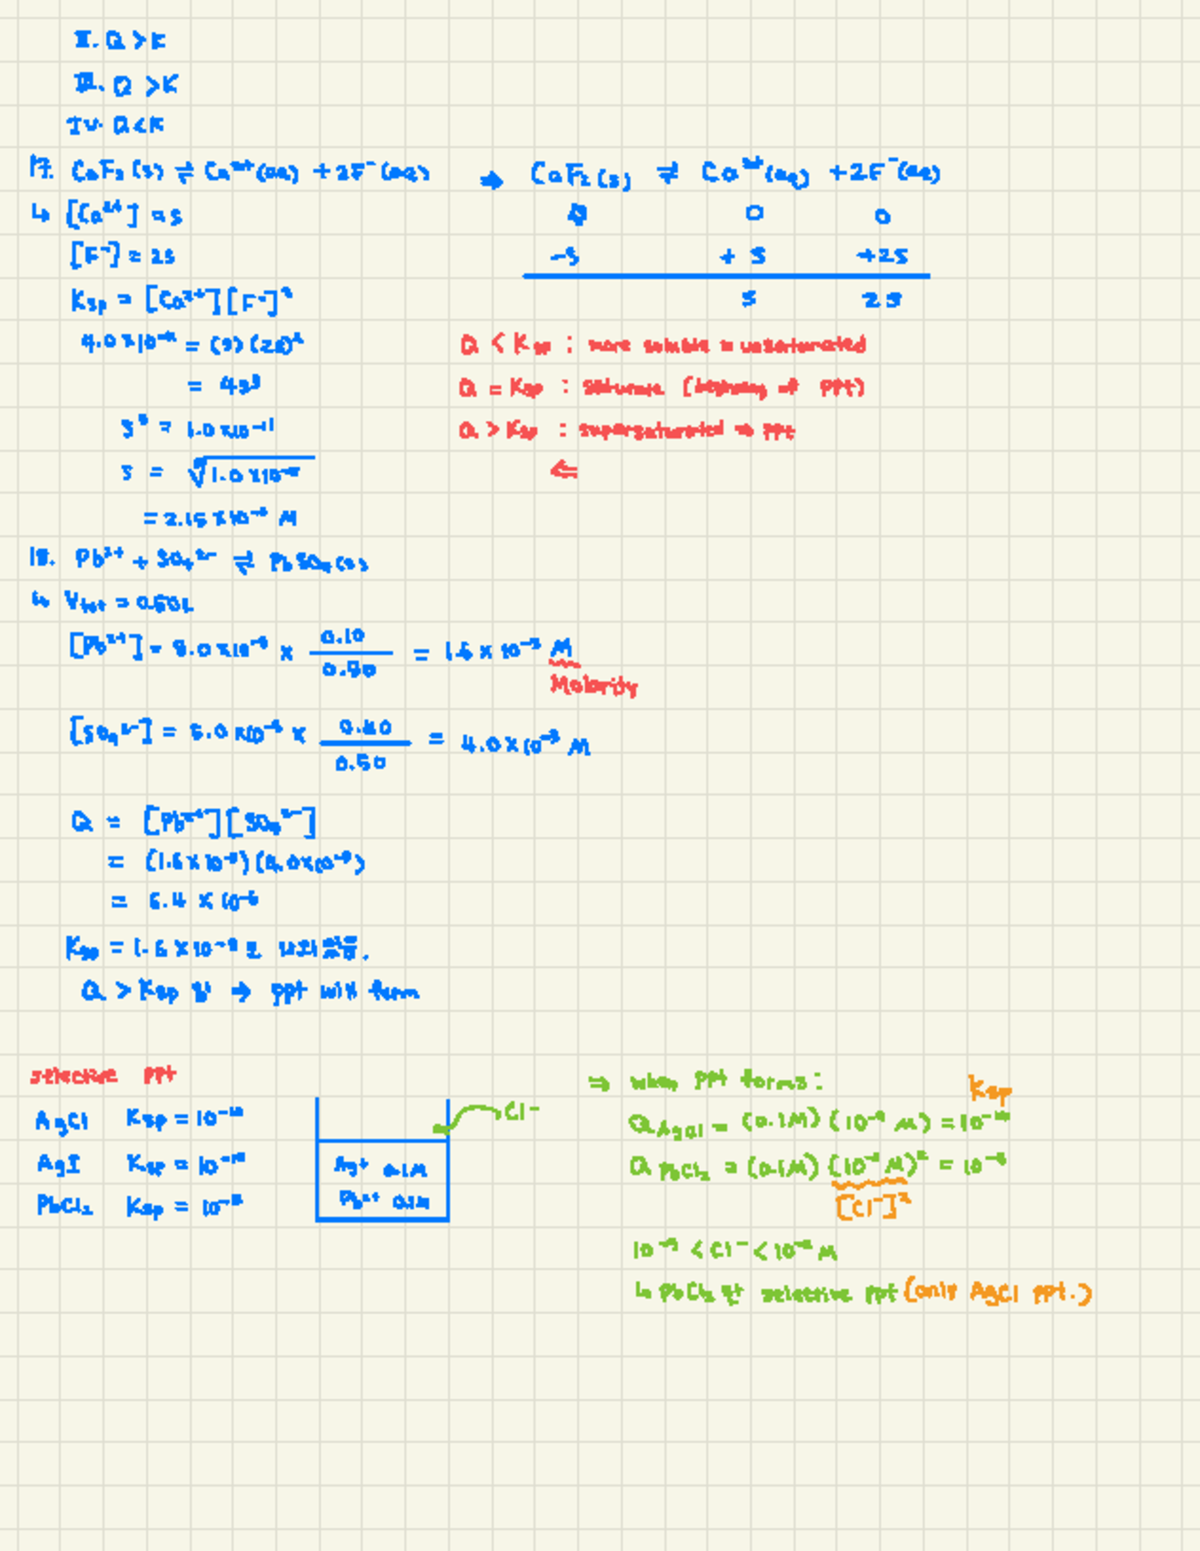 II. Q > K
III. Q > K
IV. Q < K
17. CaF₂ (s) ⇌ Ca²⁺ (aq) + 2F⁻ (aq) ⇒ CaF₂ (s) ⇌ Ca²⁺ (aq) + 2F⁻ (aq)
↳ [Ca²⁺] = s
0 0
[F⁻] = 2s
-s + s +2s
s 2s
Ksp = [Ca²⁺][F⁻]²
4.0 × 10⁻¹¹ = (s)(2s)²
= 4s³
s³ = 1.0 × 10⁻¹¹
s = ∛1.0 × 10⁻¹¹
= 2.15 × 10⁻⁴ M
Q < Ksp : more soluble = unsaturated
Q = Ksp : saturate (beginning of ppt)
Q > Ksp : supersaturated ⇒ ppt
⇐
18. Pb²⁺ + SO₄²⁻ ⇌ PbSO₄ (s)
↳ Vtot = 0.50 L
[Pb²⁺] = 8.0 × 10⁻³ × 0.10 / 0.50 = 1.6 × 10⁻³ M
Molarity
[SO₄²⁻] = 5.0 × 10⁻³ × 0.40 / 0.50 = 4.0 × 10⁻³ M
Q = [Pb²⁺][SO₄²⁻]
= (1.6 × 10⁻³)(4.0 × 10⁻³)
= 6.4 × 10⁻⁶
Ksp = 1.6 × 10⁻⁸
Q > Ksp → ppt will form
selective ppt
AgCl Ksp = 10⁻¹⁰
AgI Ksp =
PbCl₂ Ksp =
Cl⁻
Ag⁺ 0.1M
Pb²⁺ 0.1M
⇒ when ppt forms :
Ksp
Q AgCl = (0.1M) (10⁻⁹ M) = 10⁻¹⁰
Q PbCl₂ = (0.1M) (10⁻² M)² = 10⁻⁵
[Cl⁻]²
10⁻⁹ < Cl⁻ < 10⁻² M
↳ PbCl₂ selective ppt (only AgCl ppt.)